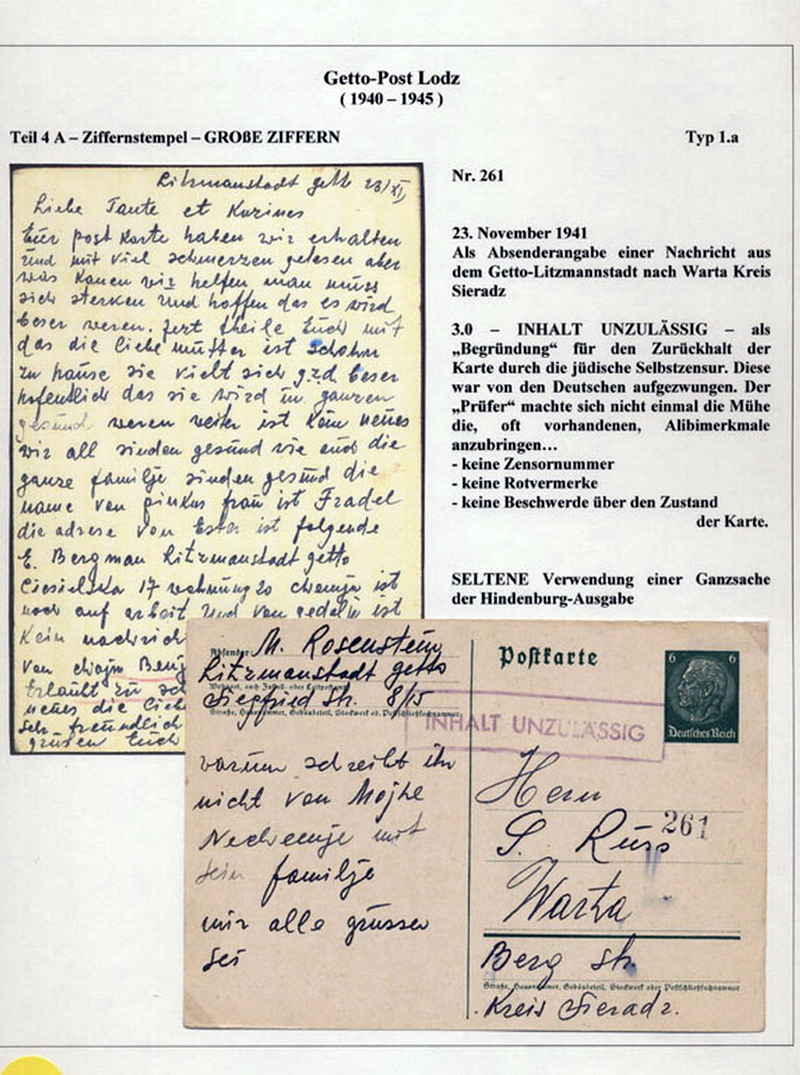 Getto-Post Lodz
( 1940 – 1945 )
Teil 4 A – Ziffernstempel – GROßE ZIFFERN
Typ 1.a
Litzmanstadt gett 23/XI
Liebe Tante et Kuzines
Eür post karte haben wir erhalten
und mit viel schmerzen gelesen aber
was kanen wir helfen, man mües
sich sterken und hoffen das es wird
beser weren. jezt theile Euch mit
das die liebe mutter ist schohn
zu hause sie vielt sich g.z.d. beser
hofentlich das sie wird in ganzen
gesund weren weiter ist kein neues
wir all sinden gesund vie aud die
ganze familje sinden gesund die
name von pinkus frau ist Fradel
die adrese von Ester ist folgende
E. Bergman Litzmanstadt getto
Ciesielska 17 wohnung 20 chemja ist
noch auf arbeit und von gedalje ist
kein nachrich
von chajm Berg
Erlaubt zu
neues die liebe
sehr freundlich
grüsen Euch
Nr. 261
23. November 1941
Als Absenderangabe einer Nachricht aus
dem Getto-Litzmannstadt nach Warta Kreis
Sieradz
3.0 – INHALT UNZULÄSSIG – als
„Begründung“ für den Zurückhalt der
Karte durch die jüdische Selbstzensur. Diese
war von den Deutschen aufgezwungen. Der
„Prüfer“ machte sich nicht einmal die Mühe
die, oft vorhandenen, Alibimerkmale
anzubringen…
- keine Zensornummer
- keine Rotvermerke
- keine Beschwerde über den Zustand
der Karte.
SELTENE Verwendung einer Ganzsache
der Hindenburg-Ausgabe
Absender: M. Rosenstein
Litzmanstadt getto
Wohnort, auch Zustell- oder Leitpostamt
Siegfried str. 8/15
Straße, Hausnummer, Gebäudeteil, Stockwerk od. Postschließfachnummer
warum schreibt ihr
nicht von Mojhe
Nechemje mit
sein familje
mir alle grüssen
Postkarte
6 6
Deutsches Reich
INHALT UNZULÄSSIG
Herrn
S. Russ
261
Warta
Berg str.
Straße, Hausnummer, Gebäudeteil, Stockwerk oder Postschließfachnummer
Kreis Sieradz.